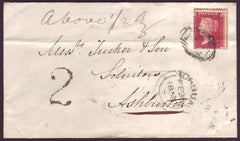 Above ½ oz
Messrs Tucker & Son
Solicitors
2
Ashburton
TORQUAY